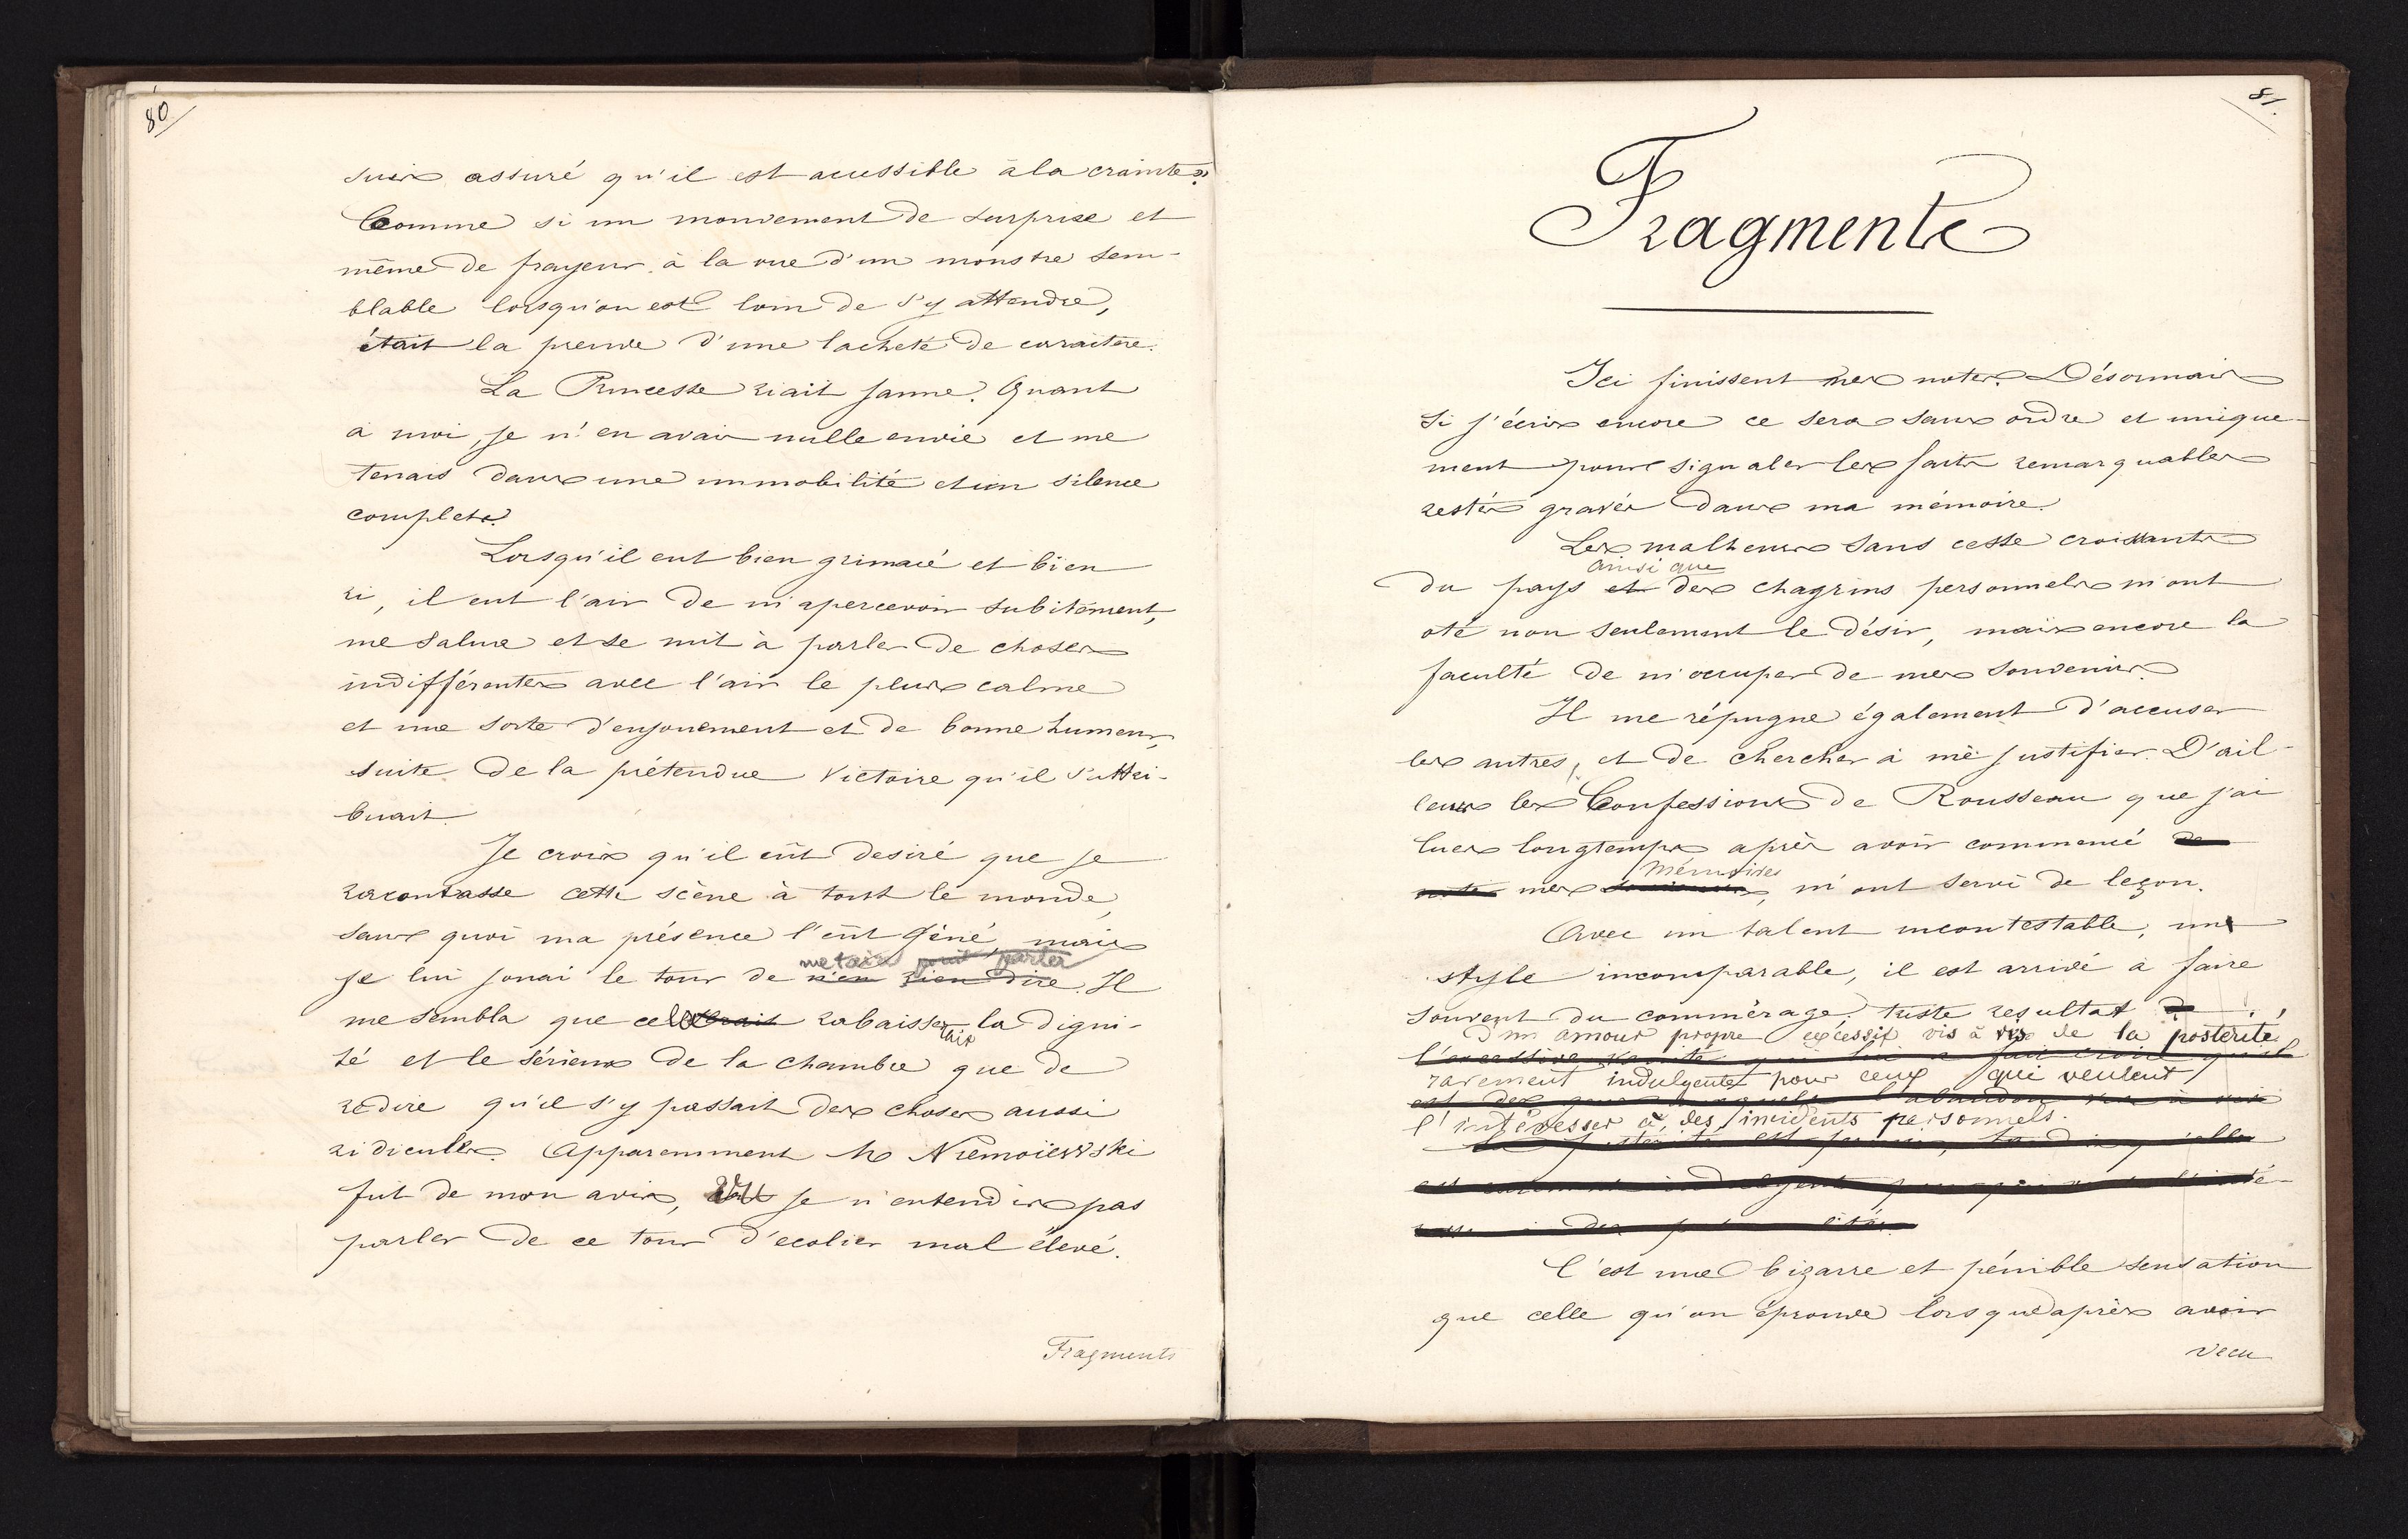 80
suis assuré qu'il est accessible à la crainte."
Comme si un mouvement de surprise et
même de frayeur à la vue d'un monstre sem-
blable lorsqu'on est loin de s'y attendre,
était la preuve d'une lacheté de caractère.
La Princesse riait jaune. Quant
à moi, je n'en avais nulle envie et me
tenais dans une immobilité et un silence
complets.
Lorsqu'il eut bien grimacé et bien
ri, il eut l'air de m'apercevoir subitement,
me salua et se mit à parler de choses
indifférentes avec l'air le plus calme
et une sorte d'enjouement et de bonne humeur,
suite de la prétendue victoire qu'il s'attri-
buait.
Je crois qu'il eût desiré que je
racontasse cette scène à tout le monde,
sans quoi ma présence l'eût gêné, mais
me taire parler
je lui jouai le tour de n'en rien dire. Il
me sembla que cela rabaisserait la digni-
té et le sérieux de la chambre que de
redire qu'il s'y passait des choses aussi
ridicules. Apparemment M Niemoiewski
fut de mon avis, je n'entendis pas
parler de ce tour d'ecolier mal élevé.
Fragments
81.
Fragments
Ici finissent mes notes. Désormais
si j'écris encore ce sera sans ordre et unique-
ment pour signaler les faits remarquables
restés gravés dans ma mémoire.
Les malheurs sans cesse croissants
ainsi que
du pays et des chagrins personnels m'ont
oté non seulement le désir, mais encore la
faculté de m'occuper de mes souvenirs.
Il me répugne également d'accuser
les autres, et de chercher à me justifier. D'ail-
leurs les Confessions de Rousseau que j'ai
lues longtemps après avoir commencé de
Mémoires
mes, m'ont servi de leçon.
Avec un talent incontestable, un
style incomparable, il est arrivé à faire
souvent du commérage. triste resultat
d'un amour propre excessif vis à vis de la posterité,
rarement indulgente pour ceux qui veulent
l'intéresser à des incidents personnels.
C'est une bizarre et pénible sensation
que celle qu'on éprouve lorsque après avoir
vecu